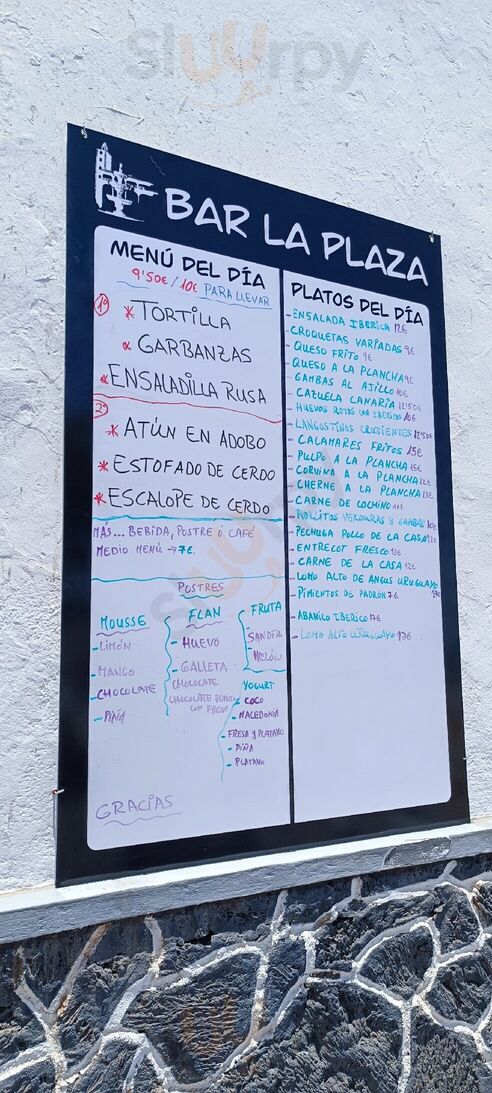 sluurpy
BAR LA PLAZA
MENÚ DEL DÍA
9'50€ / 10€ PARA LLEVAR
1º
* TORTILLA
* GARBANZAS
* ENSALADILLA RUSA
2º
* ATÚN EN ADOBO
* ESTOFADO DE CERDO
* ESCALOPE DE CERDO
MÁS... BEBIDA, POSTRE Ó CAFÉ
MEDIO MENÚ → 7€.
POSTRES
MOUSSE
- LIMÓN
- MANGO
- CHOCOLATE
- PIÑA
FLAN
- HUEVO
- GALLETA
CHOCOLATE
CHOCOLATE BLANCO
CON FRESA
FRUTA
- SANDÍA
- MELÓN
YOGURT
- COCO
- MACEDONIA
- FRESA Y PLATANO
- PIÑA
- PLATANO
GRACIAS
PLATOS DEL DÍA
- ENSALADA IBERICA 12€
- CROQUETAS VARIADAS 9€
- QUESO FRITO 9€
- QUESO A LA PLANCHA 9€
- GAMBAS AL AJILLO
- CAZUELA CANARIA 12'50€
- HUEVOS ROTOS CON IBERICOS 10€
- LANGOSTINOS CRUJIENTES 12'50€
- CALAMARES FRITOS 15€
- PULPO A LA PLANCHA 15€
- CORVINA A LA PLANCHA 12€
- CHERNE A LA PLANCHA 13€
- CARNE DE COCHINO
- ROLLITOS VERDURAS Y GAMBAS
- PECHUGA POLLO DE LA CASA 12€
- ENTRECOT FRESCO
- CARNE DE LA CASA 12€
- LOMO ALTO DE ANGUS URUGUAYO
- PIMIENTOS DE PADRÓN 7€
- ABANICO IBERICO 17€
- LOMO ALTO URUGUAYO 17€